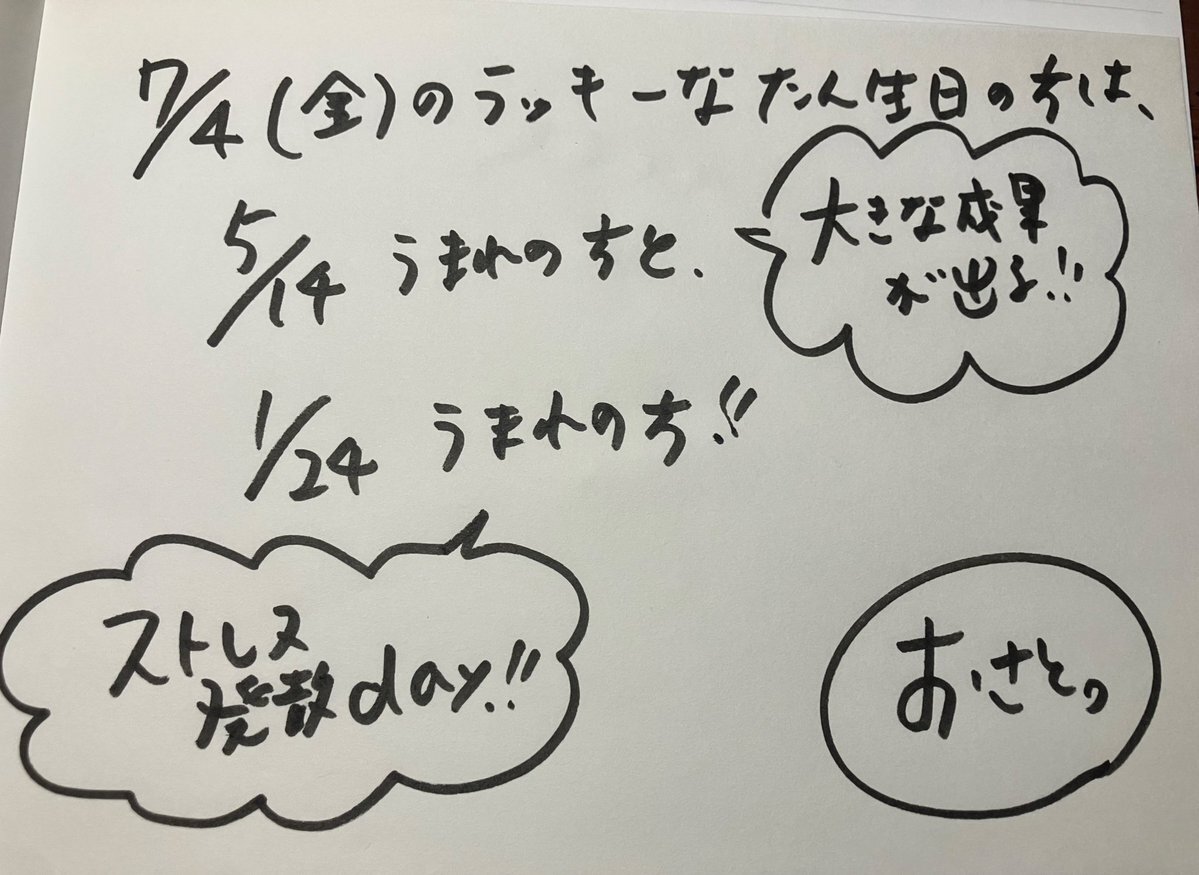 7/4(金)のラッキーなたん生日の方は、
5/14 うまれの方と、
大きな成果
が出る!!
1/24 うまれの方!!
ストレス
発散day!!
おさとっ